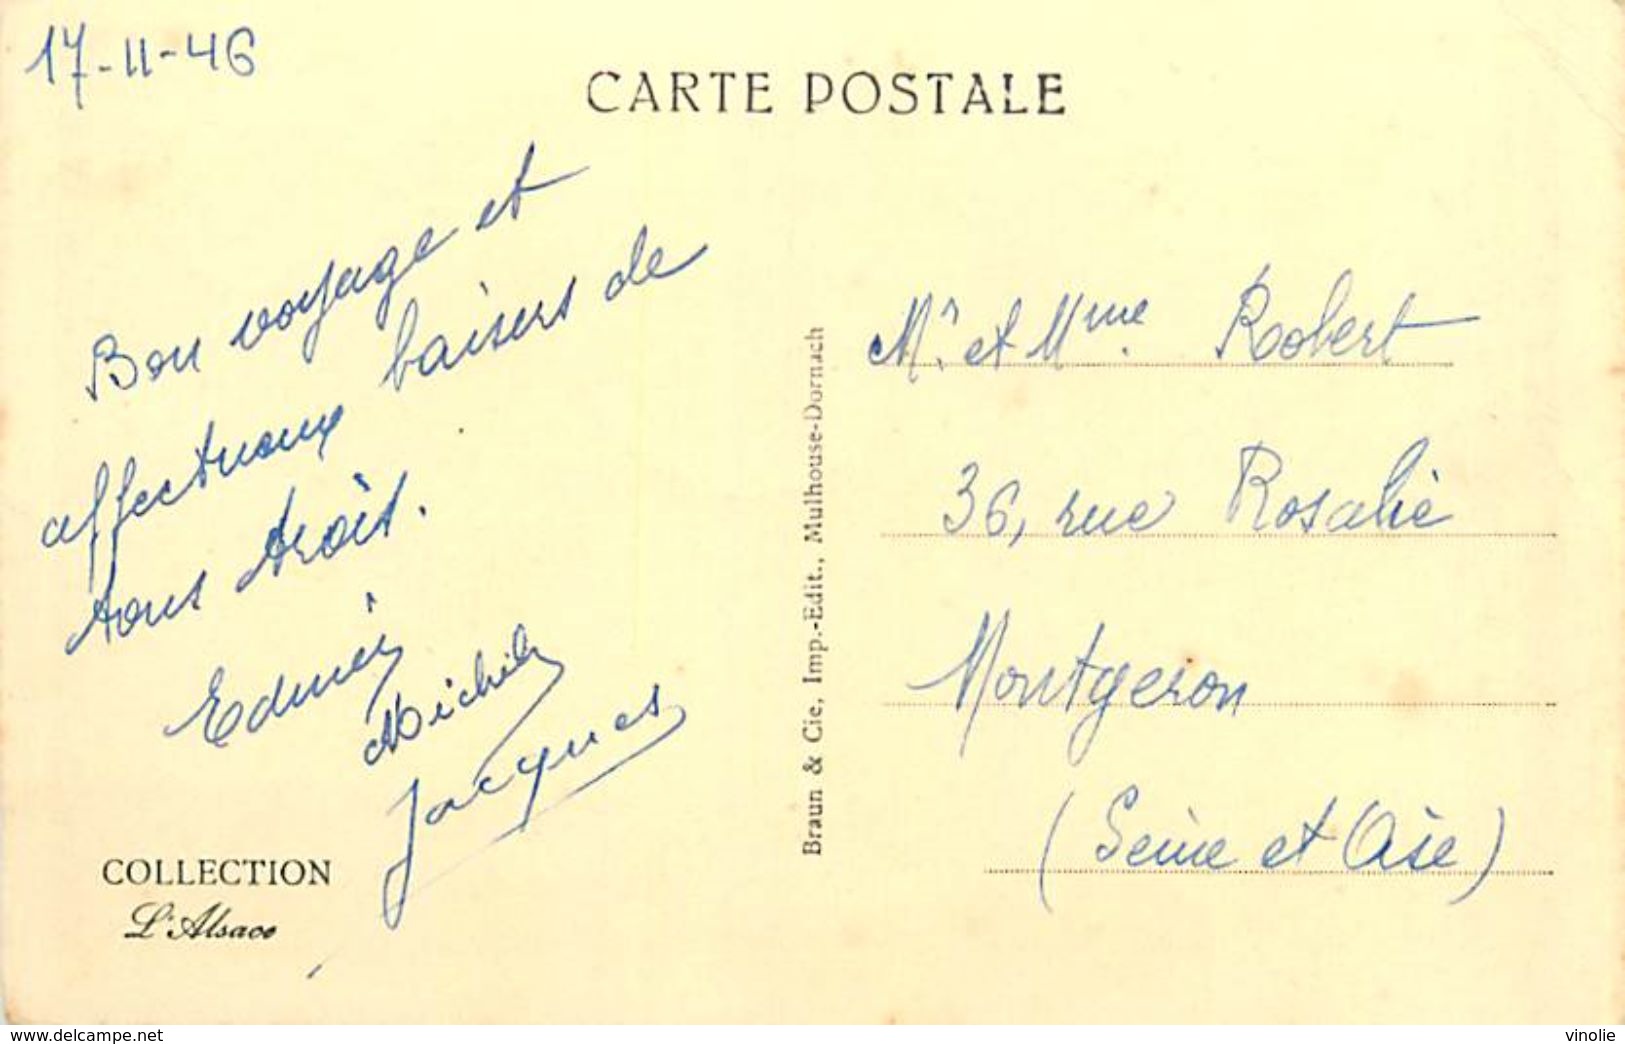 17-11-46
CARTE POSTALE
Bon voyage et
affectueux baisers de
tous trois.
Edmée
Michèle
Jacques
COLLECTION
L'Alsace
Braun & Cie, Imp.-Edit., Mulhouse-Dornach
Mr. et Mme. Robert
36, rue Rosalie
Montgeron
(Seine et Oise)
www.delcampe.net
vinolie